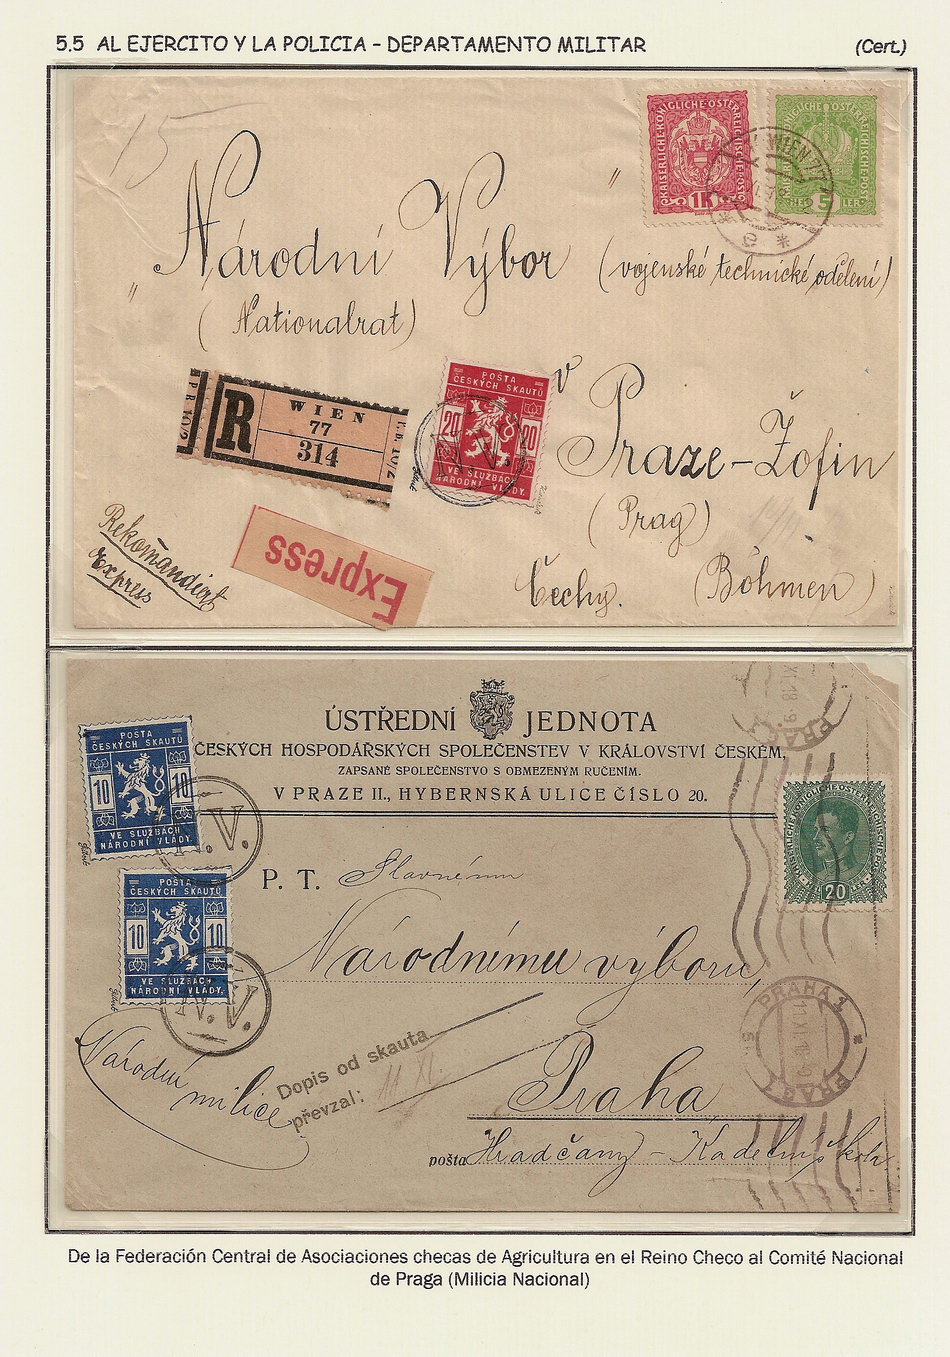 5.5 AL EJERCITO Y LA POLICIA – DEPARTAMENTO MILITAR
(Cert.)
15
KAISERLICHE KÖNIGLICHE ÖSTERREICHISCHE POST
1K
KAISERLICHE KÖNIGLICHE ÖSTERREICHISCHE POST
HELLER
5
WIEN 77
„ Národní Výbor " (vojenské technické oddělení)
(Nationalrat)
v
Praze – Žofín
(Prag)
Čechy. (Böhmen)
R
WIEN
77
314
P.B. 10/2
P.B. 10/2
POŠTA
ČESKÝCH SKAUTŮ
20 20
VE SLUŽBÁCH
NÁRODNÍ VLÁDY.
N.V.
Rekomandiert
Express
Express
ÚSTŘEDNÍ JEDNOTA
ČESKÝCH HOSPODÁŘSKÝCH SPOLEČENSTEV V KRÁLOVSTVÍ ČESKÉM,
ZAPSANÉ SPOLEČENSTVO S OBMEZENÝM RUČENÍM.
V PRAZE II., HYBERNSKÁ ULICE ČÍSLO 20.
POŠTA
ČESKÝCH SKAUTŮ
10 10
VE SLUŽBÁCH
NÁRODNÍ VLÁDY.
N.V.
POŠTA
ČESKÝCH SKAUTŮ
10 10
VE SLUŽBÁCH
NÁRODNÍ VLÁDY.
N.V.
20
P. T. Slavnému
Národnímu výboru,
Praha
pošta Hradčany – Kadetní škola
Národní
milice
Dopis od skauta
převzal:
11 XI
PRAHA 1
11 XI 18
PRAG 1
De la Federación Central de Asociaciones checas de Agricultura en el Reino Checo al Comité Nacional
de Praga (Milicia Nacional)